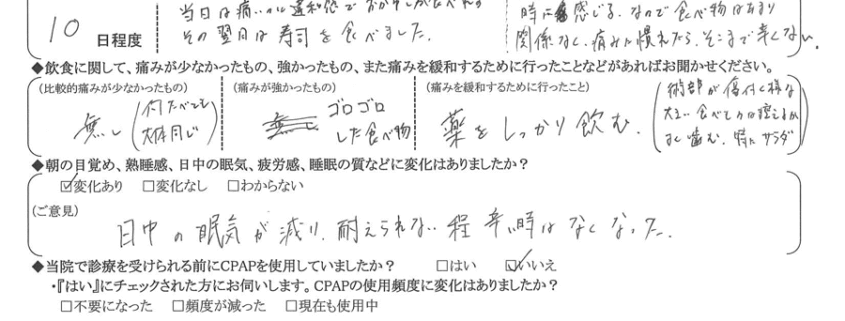 当日は痛いのに違和感でおかずしか食べれず
その翌日は寿司を食べました。
10 日程度
時に感じる。なので食べ物はあまり
関係なく、痛みに慣れたら、そこまで辛くない。
◆飲食に関して、痛みが少なかったもの、強かったもの、また痛みを緩和するために行ったことなどがあればお聞かせください。
(比較的痛みが少なかったもの)
無し (何たべても
大体同じ)
(痛みが強かったもの)
ゴロゴロ
した食べ物
(痛みを緩和するために行ったこと)
薬をしっかり飲む。
(術部が傷付く様な
食べものは控えるか
よく噛む。特にサラダ)
◆朝の目覚め、熟睡感、日中の眠気、疲労感、睡眠の質などに変化はありましたか？
☑変化あり □変化なし □わからない
(ご意見)
日中の眠気が減り、耐えられない程辛い時はなくなった。
◆当院で診療を受けられる前にCPAPを使用していましたか？ □はい ☑いいえ
・『はい』にチェックされた方にお伺いします。CPAPの使用頻度に変化はありましたか？
□不要になった □頻度が減った □現在も使用中